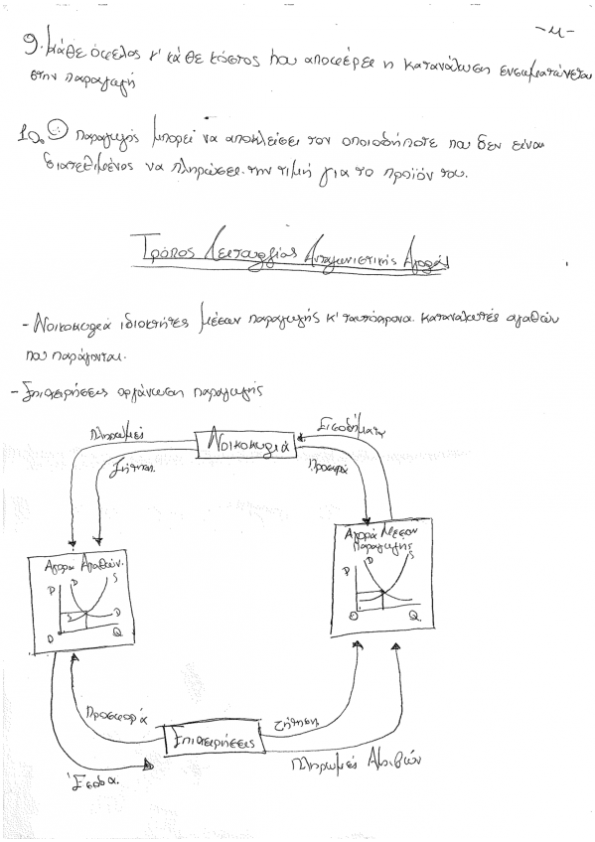 -4-
9. Κάθε όφελος κ' κάθε κόστος που αποφέρει η κατανάλωση ενσωματώνεται
στην παραγωγή
10. Ο παραγωγός μπορεί να αποκλείσει τον οποιοδήποτε που δεν είναι
διατεθιμένος να πληρώσει την τιμή για το προϊόν του.
Τρόπος Λειτουργίας Ανταγωνιστικής Αγοράς
- Νοικοκυριά ιδιοκτήτες μέσων παραγωγής κ' ταυτόχρονα καταναλωτές αγαθών
που παράγονται.
- Επιχειρήσεις οργάνωση παραγωγής
Πληρωμές
Νοικοκυριά
Εισοδήματα
Ζήτηση
Προσφορά
Αγορά Αγαθών.
P D S
D
O Q
Αγορά Μέσων
Παραγωγής
P D S
O Q
Προσφορά
Ζήτηση
Επιχειρήσεις
Πληρωμές Αμοιβών
Έσοδα.